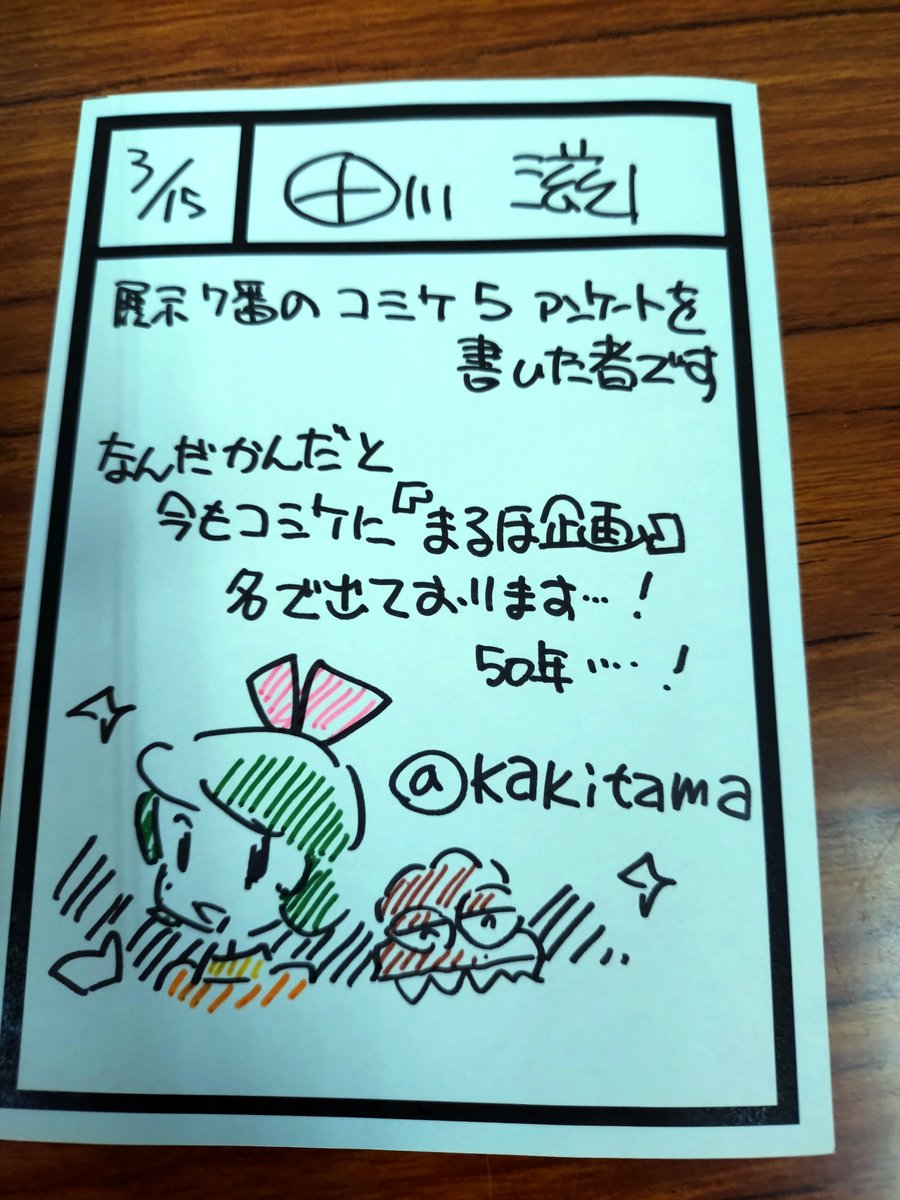 3/15
田川 滋
展示7番の コミケ5 アンケートを
書いた者です
なんだかんだと
今もコミケに『まるほ企画』
名で出ております…!
50年….!
@kakitama